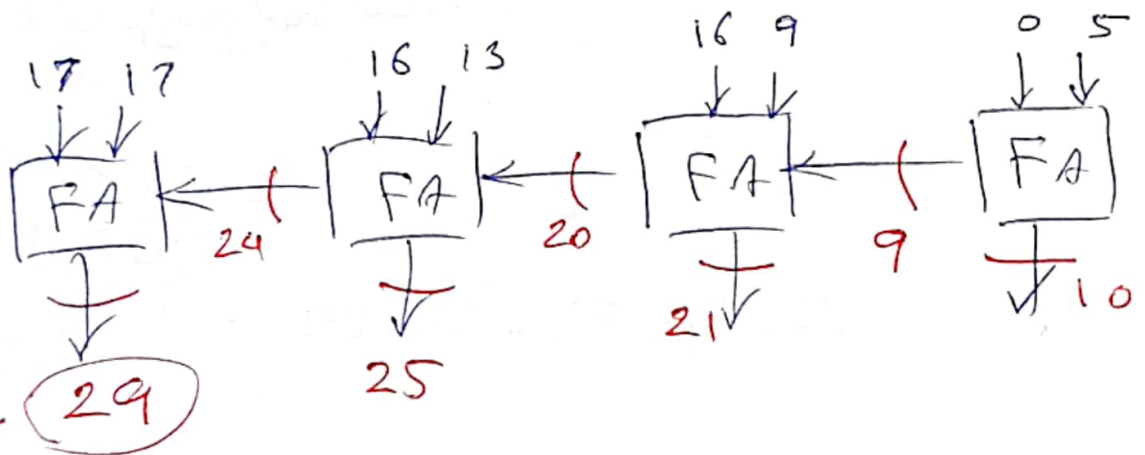 17 17 16 13 16 9 0 5
FA FA FA FA
24 20 9 10
29 25 21